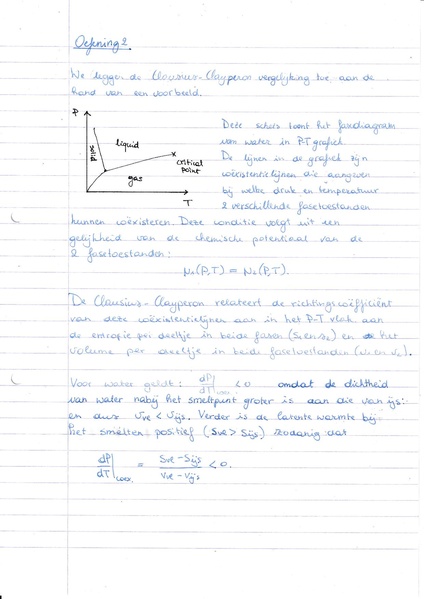 Oefening 2.
We leggen de Clausius-Clayperon vergelijking toe aan de
hand van een voorbeeld.
P
solid
liquid
gas
critical
point
T
Deze schets toont het fasediagram
van water in P-T grafiek
De lijnen in de grafiek zijn
coëxistentielijnen die aangeven
bij welke druk en temperatuur
2 verschillende fasetoestanden
kunnen coëxisteren. Deze conditie volgt uit een
gelijkheid van de chemische potentiaal van de
2 fasetoestanden:
μ₁(P,T) = μ₂(P,T).
De Clausius-Clayperon relateert de richtingscoëfficiënt
van deze coëxistentielijnen aan in het P-T vlak aan
de entropie per deeltje in beide fasen (s₁ en s₂) en het
volume per deeltje in beide fasetoestanden (v₁ en v₂).
Voor water geldt: dP/dT|coex < 0 omdat de dichtheid
van water nabij het smeltpunt groter is aan die van ijs:
en dus Vvl < Vijs. Verder is de latente warmte bij
het smelten positief (Svl > Sijs) zodanig dat
dP/dT|coex. = Svl - Sijs / Vvl - Vijs < 0.